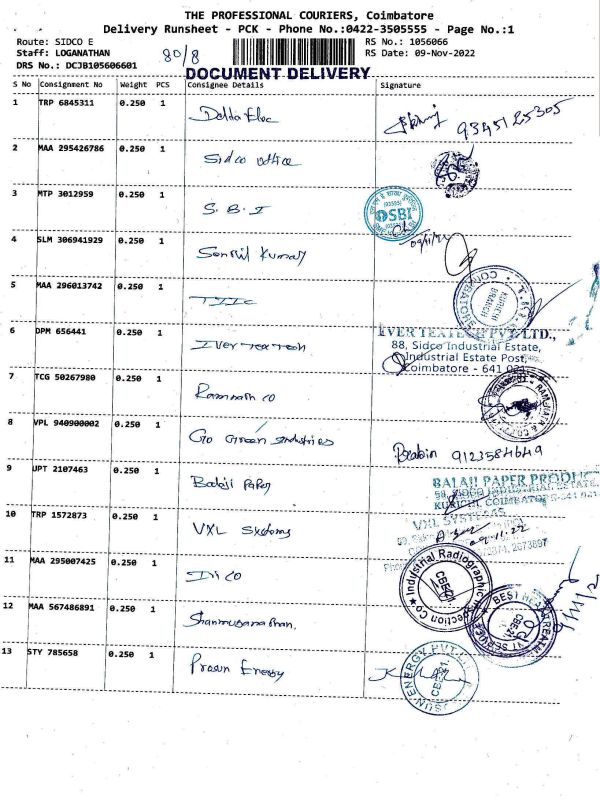 THE PROFESSIONAL COURIERS, Coimbatore
Delivery Runsheet - PCK - Phone No.:0422-3505555 - Page No.:1
Route: SIDCO E
Staff: LOGANATHAN
DRS No.: DCJB105606601
80/8
RS No.: 1056066
RS Date: 09-Nov-2022
DOCUMENT DELIVERY
S No Consignment No Weight PCS Consignee Details Signature
1 TRP 6845311 0.250 1 Delta Elec 9345125305
2 MAA 295426786 0.250 1 Sidco office
3 MTP 3012959 0.250 1 S.B.I
SBI
4 SLM 306941929 0.250 1 Senthil Kumar 09/11/22
5 MAA 296013742 0.250 1 TIIC
COIMBATORE
KURICHI BRANCH
6 DPM 656441 0.250 1 Iver Tex Tech
IVER TEXTECH PVT. LTD.,
88, Sidco Industrial Estate,
Industrial Estate Post,
Coimbatore - 641 021
7 TCG 50267980 0.250 1 Ramnath co
8 VPL 940900002 0.250 1 Go Green Industries Brabin 9123584649
9 JPT 2107463 0.250 1 Balaji Paper
BALAJI PAPER PRODUC
58, SIDCO INDUSTRIAL ESTATE,
KURICHI, COIMBATORE-641 021
10 TRP 1572873 0.250 1 VXL Systems
VXL SYSTEMS
09.11.22
2673897
11 MAA 295007425 0.250 1 Iri co
Industrial Radiographic Inspection Co
12 MAA 567486891 0.250 1 Shanmuganathan.
BEST HEAT TREATMENT SERVICES
13 STY 785658 0.250 1 Prosun Energy
SUN ENERGY PVT